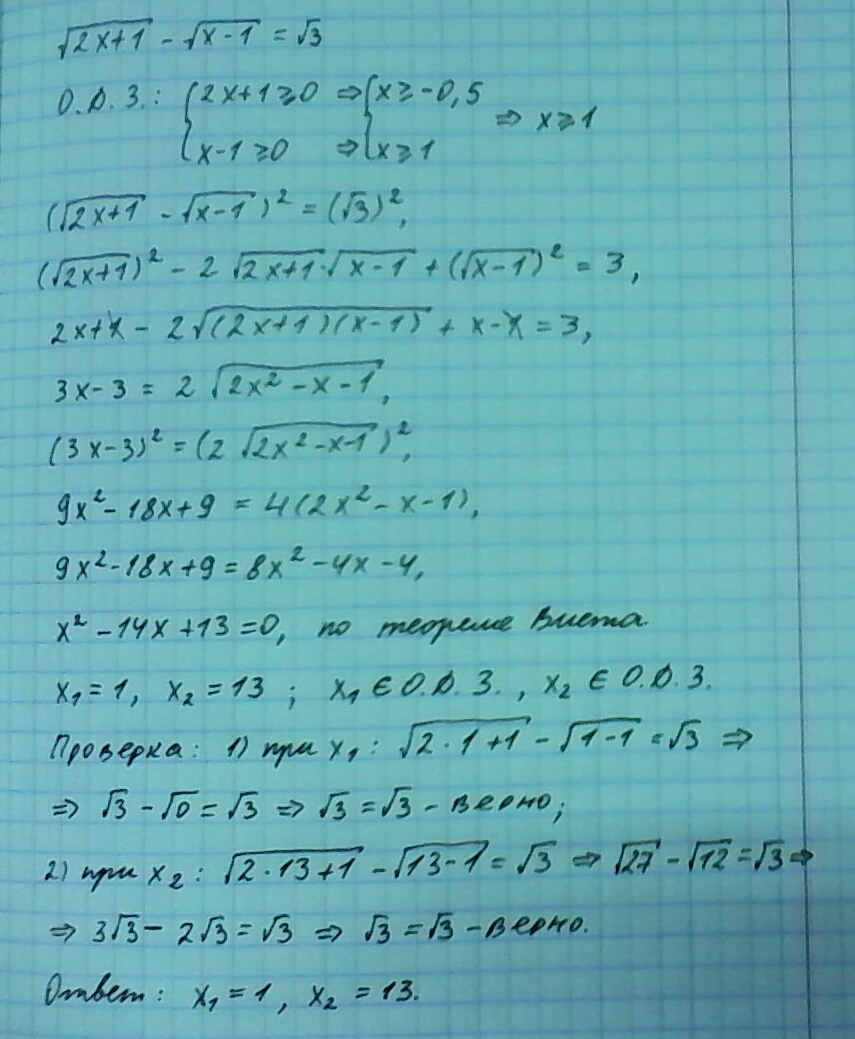 √(2x+1) - √(x-1) = √3
О.Д.З.: { 2x+1≥0 ⇒ { x≥-0,5
{ x-1≥0 ⇒ { x≥1 ⇒ x≥1
(√(2x+1) - √(x-1))² = (√3)²,
(√(2x+1))² - 2√(2x+1)·√(x-1) + (√(x-1))² = 3,
2x+1 - 2√((2x+1)(x-1)) + x-1 = 3,
3x-3 = 2√(2x²-x-1),
(3x-3)² = (2√(2x²-x-1))²,
9x²-18x+9 = 4(2x²-x-1),
9x²-18x+9 = 8x²-4x-4,
x²-14x+13=0, по теореме Виета
x₁=1, x₂=13; x₁ ∈ О.Д.З., x₂ ∈ О.Д.З.
Проверка: 1) при x₁: √(2·1+1) - √(1-1) = √3 ⇒
⇒ √3 - √0 = √3 ⇒ √3 = √3 - верно;
2) при x₂: √(2·13+1) - √(13-1) = √3 ⇒ √27 - √12 = √3 ⇒
⇒ 3√3 - 2√3 = √3 ⇒ √3 = √3 - верно.
Ответ: x₁ = 1, x₂ = 13.